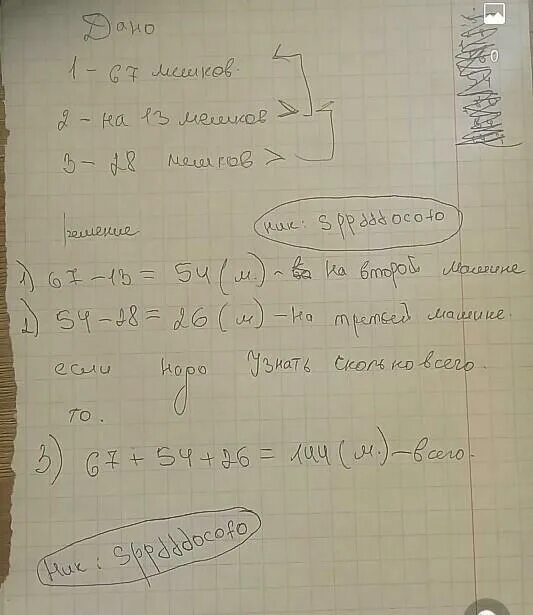 Дано
1 - 67 мешков.
2 - на 13 мешков >
3 - 28 мешков >
решение
ник: sppdddocofo
1) 67 - 13 = 54 (м.) - на второй машине
2) 54 - 28 = 26 (м) - на третьей машине.
если надо узнать сколько всего.
то.
3) 67 + 54 + 26 = 144 (м.) - всего.
ник: sppdddocofo
0